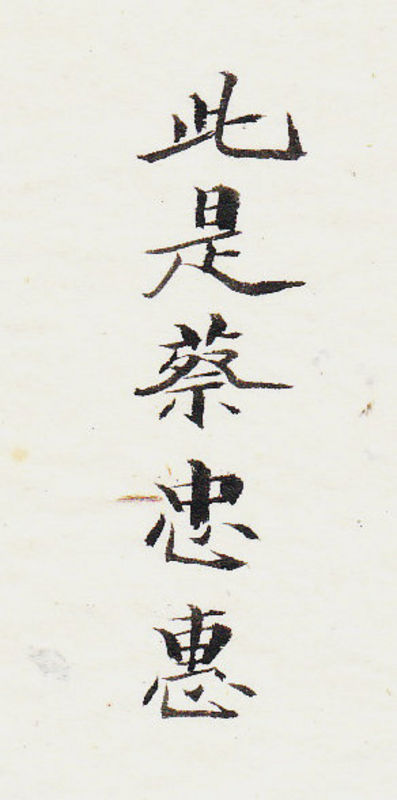 此是蔡忠惠